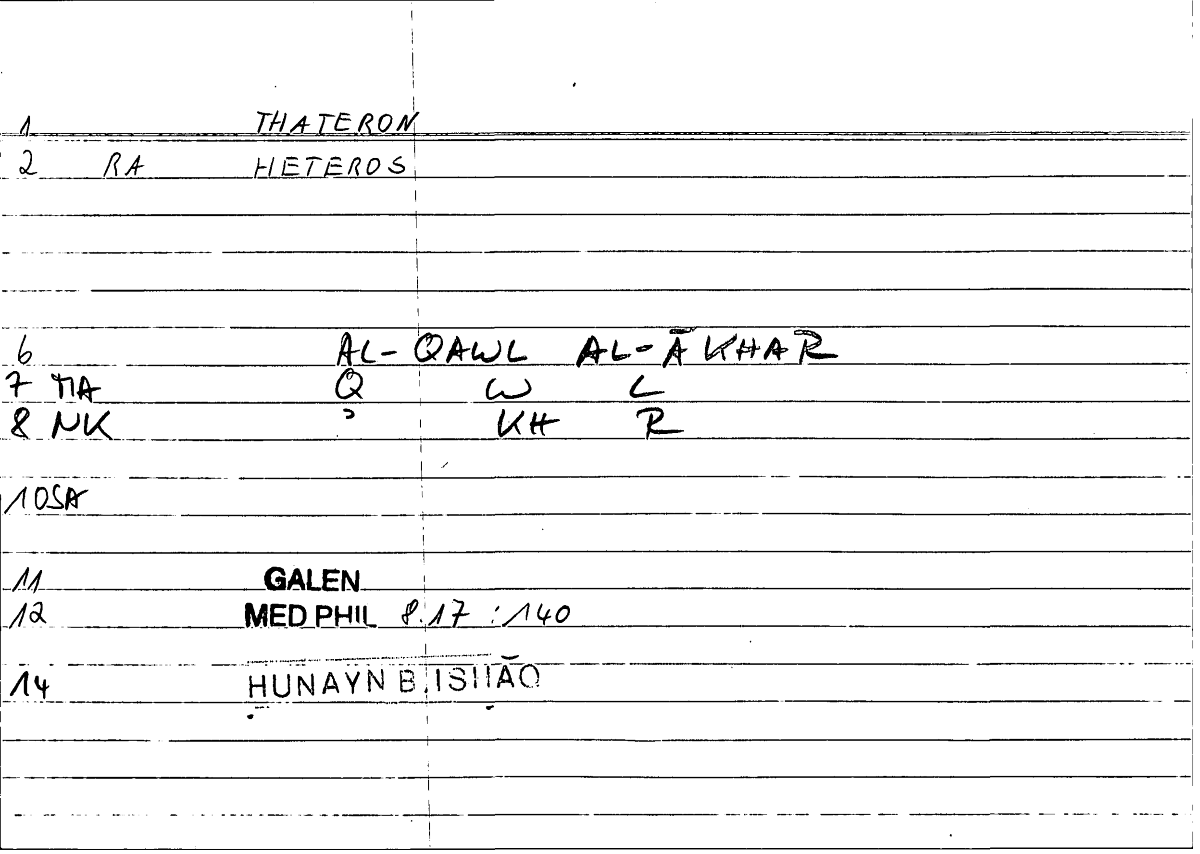 1 THATERON
2 RA HETEROS
6 AL-QAWL AL-ĀKHAR
7 MA Q W L
8 NK ʾ KH R
10 SA
11 GALEN
12 MED PHIL 8.17 :140
14 ḤUNAYN B. ISḤĀQ